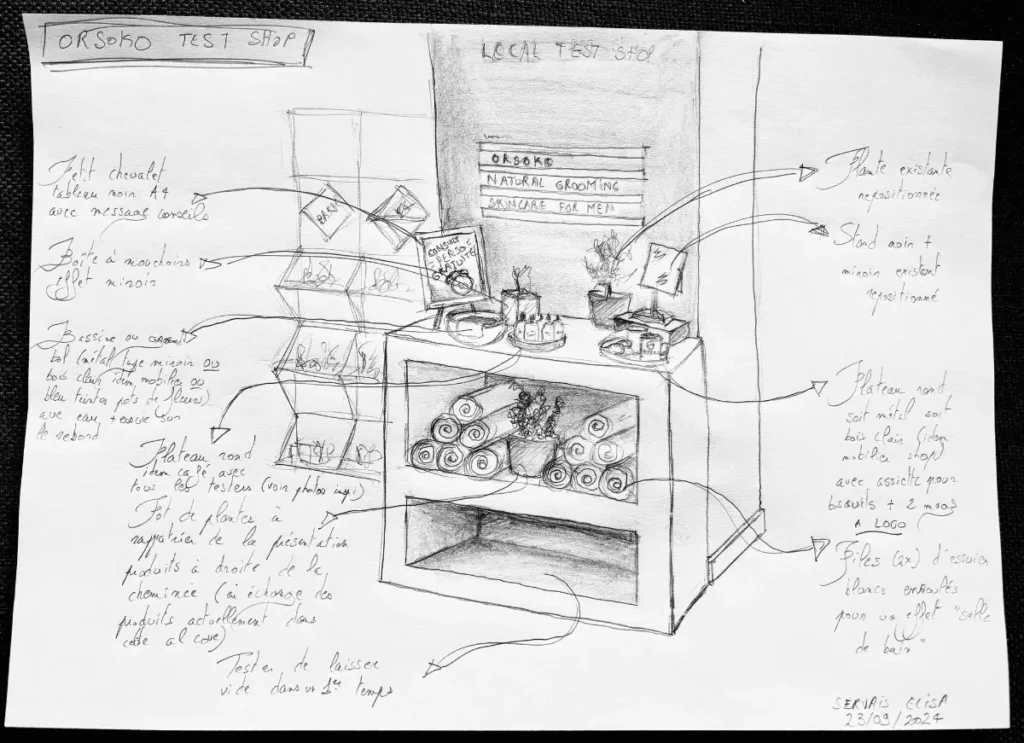 ORSOKO TEST SHOP
LOCAL TEST SHOP
ORSOKO
NATURAL GROOMING
SKINCARE FOR MEN
CONSULT
PERSO
GRATUITE
Petit chevalet
tableau noir A4
avec message conseils
Boîte à mouchoirs
effet miroir
Bassine ou
bol (métal type miroir ou
bois clair idem mobilier ou
bleu teinte pots de fleurs)
avec eau + essuie sur
le rebord
Plateau rond
idem café avec
tous les testers (voir photos inspi)
Pot de plantes à
rapatrier de la présentation
produits à droite de la
cheminée (in échange des
produits actuellement dans
cube al cove)
Tester de laisser
vide dans un 1er temps
Plante existante
repositionnée
Stand noir +
miroir existant
repositionné
Plateau rond
soit métal soit
bois clair (idem
mobilier shop)
avec assiette pour
biscuits + 2 mugs
A LOGO
Piles (2x) d'essuies
blancs enroulés
pour un effet "salle
de bain"
SERVAIS ELISA
23/09/2024